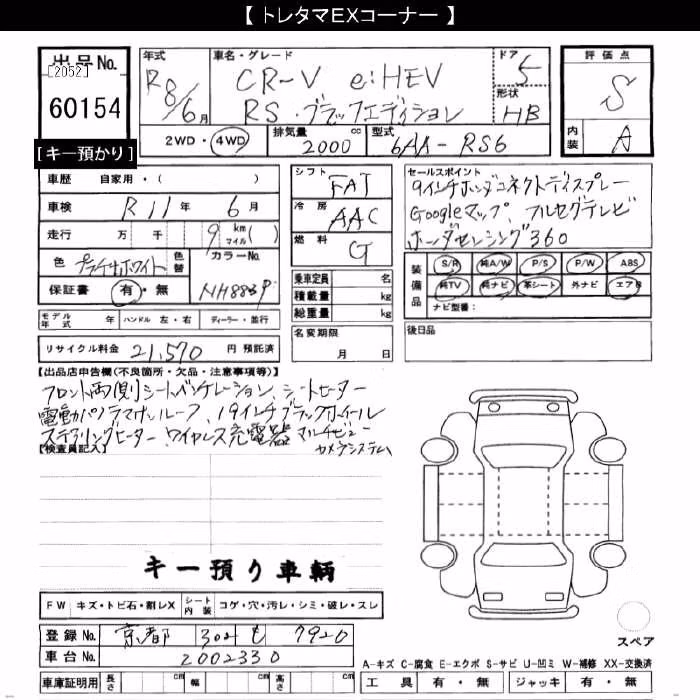 【 トレタマEXコーナー 】
出品No.
[2052]
60154
[キー預かり]
年式
R8/6月
車名・グレード
CR-V e:HEV
RS・ブラックエディション
ドア
5
形状
HB
評価点
S
内装
A
2WD・4WD
排気量 cc
2000
型式
6AA-RS6
車歴 自家用・( )
車検 R11年 6月
走行 万 千 9 km マイル ( )
色 プラチナホワイト
色替
カラーNo.
NH883P
保証書 有・無
シフト FAT
冷房 AAC
燃料 G
乗車定員 名
積載量 kg
総重量 kg
セールスポイント
9インチホンダコネクトディスプレー
Googleマップ、フルセグテレビ
ホンダセンシング360
装備品
S/R 純A/W P/S P/W ABS
純TV 純ナビ 革シート 外ナビ エアB
ナビ型番:
モデル年式 年 ハンドル 左・右 ディーラー・並行
名変期限
月 日
後日品
リサイクル料金 21,570 円 預託済
【出品店申告欄(不良箇所・欠品・注意事項等)】
フロント両側シートベンチレーション、シートヒーター
電動パノラマサンルーフ、19インチブラックホイール
ステアリングヒーター、ワイヤレス充電器 マルチビュー
カメラシステム
【検査員記入】
キー預り車輌
FW キズ・トビ石・割レX シート内装 コゲ・穴・汚レ・シミ・破レ・スレ
登録No. 京都 302 も 7920
車台No. 2002330
車庫証明用 長さ cm 幅 cm 高さ cm
スペア
A-キズ C-腐食 E-エクボ S-サビ U-凹ミ W-補修 XX-交換済
工具 有・無 ジャッキ 有・無